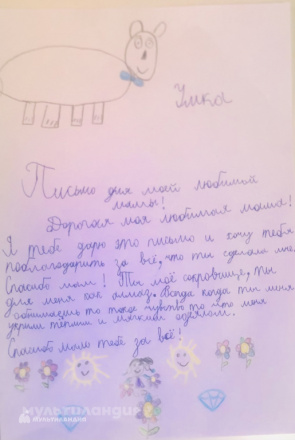 Умка
Письмо для моей любимой
мамы!
Дорогая моя любимая мама!
Я тебе дарю это письмо и хочу тебя
поблагодарить за всё, что ты сделала мне.
Спасибо мам! Ты моё сокровище, ты
для меня как алмаз. Когда ты меня
обнимаешь то такое чувство то что меня
укрыли тёплым и мягким одеялом.
Спасибо мам тебе за всё!
МУЛЬТИЛАНДИЯ